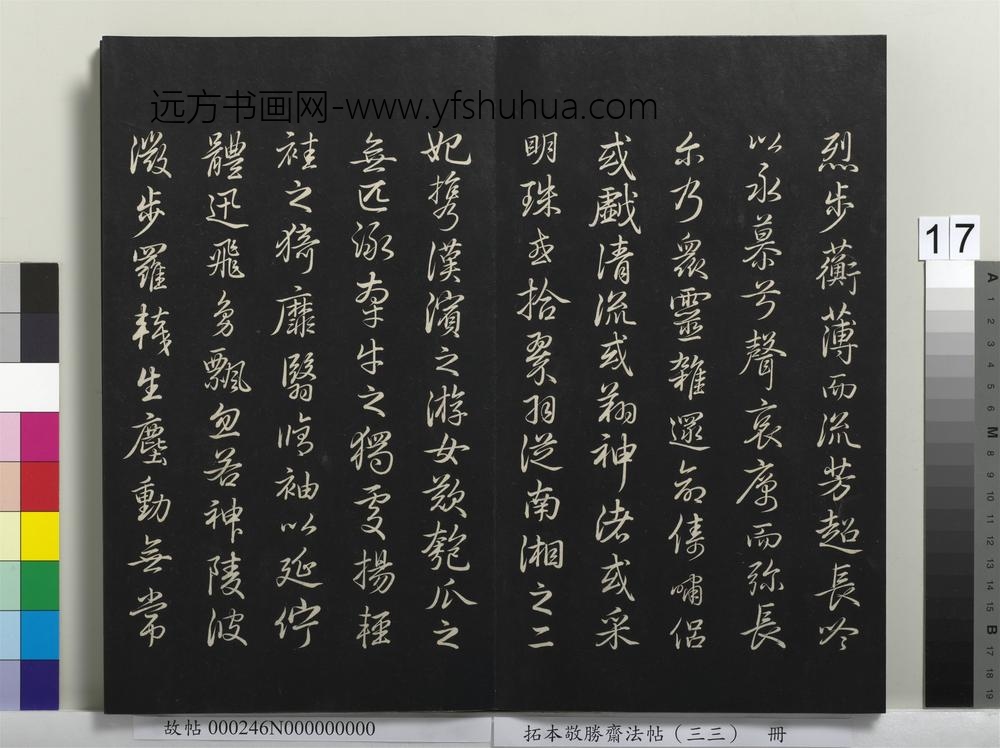 远方书画网-www.yfshuhua.com
烈步蘅薄而流芳超長吟
以永慕兮聲哀厲而弥長
尔乃衆靈雜遝命儔嘯侶
或戲清流或翔神渚或采
明珠或拾翠羽從南湘之二
妃攜漢濱之游女歎匏瓜之
無匹詠牽牛之獨處揚輕
袿之猗靡翳脩袖以延佇
體迅飛鳧飄忽若神陵波
微步羅韈生塵動無常
17
故帖 000246N000000000
拓本敬勝齋法帖(三三) 冊
A
1
2
3
4
5
6
M
8
9
10
11
12
13
14
15
B
17
18
19